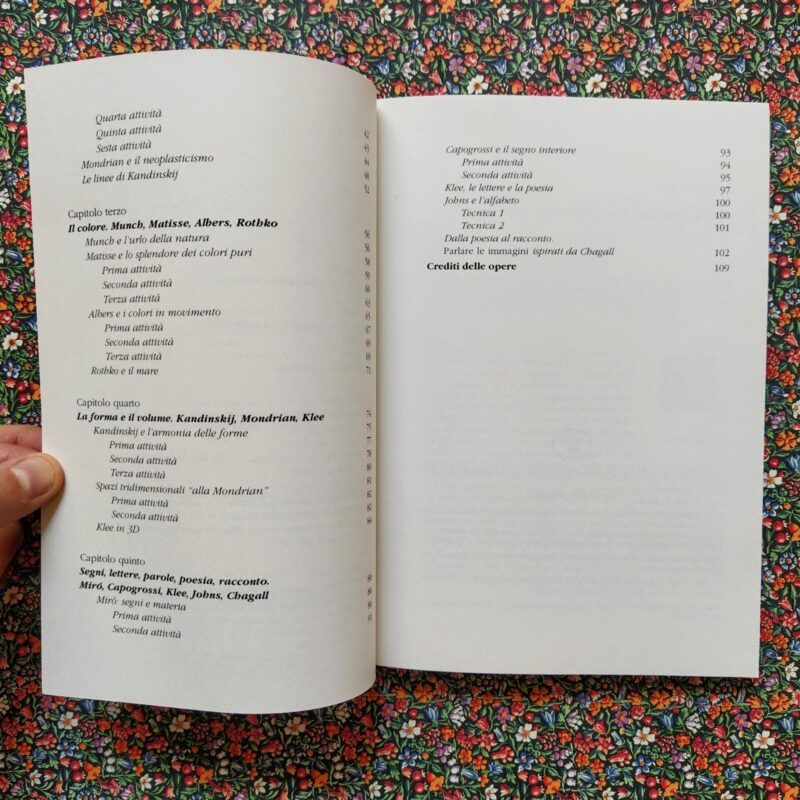 Quarta attività 42
Quinta attività 43
Sesta attività 44
Mondrian e il neoplasticismo 48
Le linee di Kandinskij 52
Capitolo terzo
Il colore. Munch, Matisse, Albers, Rothko 56
Munch e l'urlo della natura 56
Matisse e lo splendore dei colori puri 58
Prima attività 59
Seconda attività 60
Terza attività 63
Albers e i colori in movimento 65
Prima attività 67
Seconda attività 68
Terza attività 69
Rothko e il mare 71
Capitolo quarto
La forma e il volume. Kandinskij, Mondrian, Klee 74
Kandinskij e l'armonia delle forme 75
Prima attività 77
Seconda attività 78
Terza attività 80
Spazi tridimensionali "alla Mondrian" 81
Prima attività 82
Seconda attività 82
Klee in 3D 84
Capitolo quinto
Segni, lettere, parole, poesia, racconto.
Miró, Capogrossi, Klee, Johns, Chagall
Miró: segni e materia
Prima attività
Seconda attività
Capogrossi e il segno interiore 93
Prima attività 94
Seconda attività 95
Klee, le lettere e la poesia 97
Johns e l'alfabeto 100
Tecnica 1 100
Tecnica 2 101
Dalla poesia al racconto.
Parlare le immagini ispirati da Chagall 102
Crediti delle opere 109